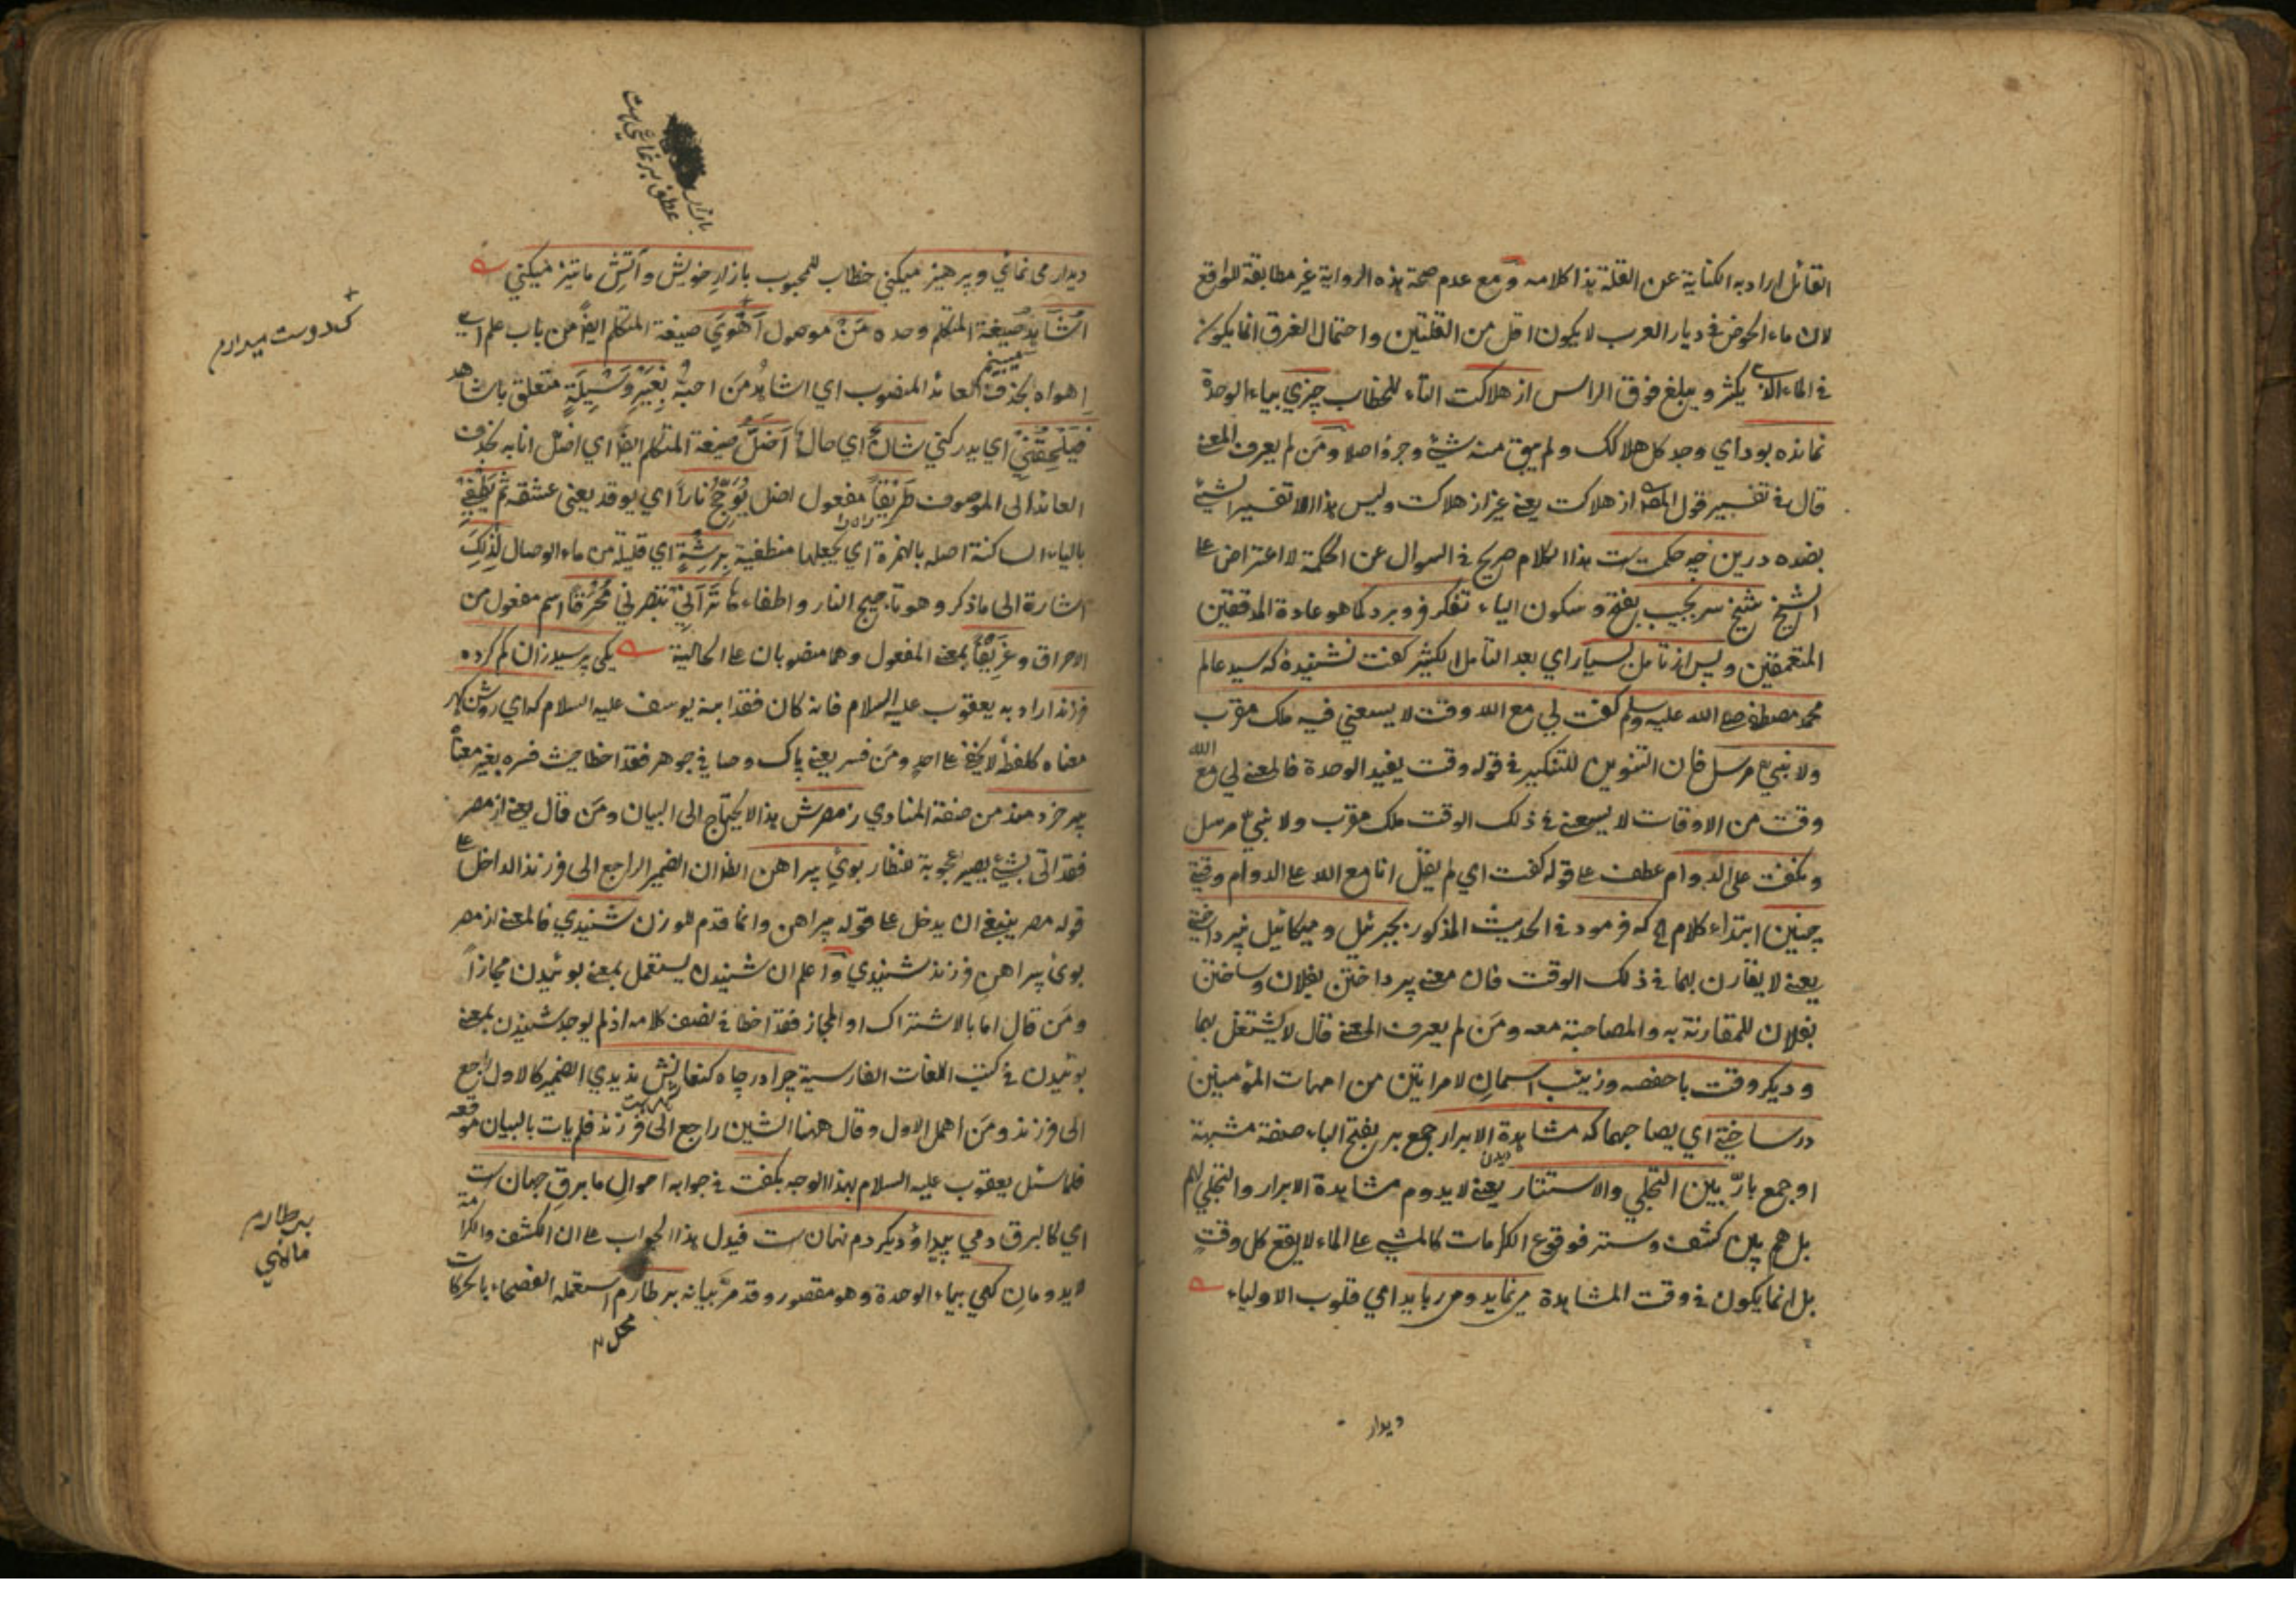 القائل اراد به الكناية عن القلة هذا كلامه و مع عدم صحة هذه الرواية غير مطابقة للواقع
لان ماء الحوض في ديار العرب لا يكون اقل من القلتين و احتمال الغرق انما يكون
في الماء الذي يكثر و يبلغ فوق الراس از هلاكت التاء للخطاب چيزي بياء الوحدة
نمانده بود اي وجد كل هلاكك و لم يبق منه شيء و جزء اصلا و من لم يعرف المعنى
قال في تفسير قول المص از هلاكت يعنى غير از هلاكت و ليس هذا الا تفسير الشيء
بضده درين چه حكمت ست هذا الكلام صريح في السوال عن الحكمة لا اعتراض على
الشيخ شيخ سر بجيب بفتح و سكون الياء تفكر فرو برد كما هو عادة المدققين
المتعمقين و پس از تامل بسيار اي بعد التامل الكثير گفت نشنيدۀ كه سيد عالم
محمد مصطفى صلى الله عليه وسلم گفت لي مع الله وقت لا يسعني فيه ملك مقرب
ولا نبي مرسل فان التنوين للتنكير في قوله وقت يفيد الوحدة فالمعنى لي مع الله
وقت من الاوقات لا يسعني في ذلك الوقت ملك مقرب ولا نبي مرسل
و نگفت على الدوام عطف على قوله گفت اي لم يقل انا مع الله على الدوام وقتي
چنين ابتداء كلام كه فرمود في الحديث المذكور بجبرئيل و ميكائيل نپرداختي
يعنى لا يقارن بهما في ذلك الوقت فان معنى پرداختن بفلان و ساختن
بفلان للمقارنة به والمصاحبة معه و من لم يعرف المعنى قال لا يشتغل بهما
و ديگر وقت با حفصه و زينب اسمان لامراتين من امهات المؤمنين
در ساختي اي يصاحبهما كه مشاهدة الابرار جمع بر بفتح الباء صفة مشبهة
او جمع بارّ بين التجلي والاستتار يعنى لا يدوم مشاهدة الابرار والتجلي لهم
بل هم بين كشف و ستر فوقوع الكرامات كالمشي على الماء لا يقع كل وقت
بل انما يكون في وقت المشاهدة مي نمايد و مي ربايد اي قلوب الاولياء
ديدار
عطف بر نمائي ست
ديدار مي نمائي و پرهيز ميكني خطاب للمحبوب بازار خويش و آتش ما تيز ميكني
اُشَاهِدُ صيغة المتكلم وحده مَنْ موصول اَهْوَي صيغة المتكلم ايضًا من باب علم اي
اهواه بحذف العائد المنصوب اي اشاهد من احبه بِغَيْرِ وَسِيلَةٍ متعلق باشاهد
فَيَلْحَقُنِي اي يدركني شان اي حال اَضَلّ صيغة المتكلم ايضا اي اضل انا به بحذف
العائد الى الموصوف طَرِيْقًا مفعول اضل يُؤَجِّجُ نارًا اي يوقد يعنى عشقه ثُمَّ يُطْفِي
بالياء الساكنة اصله بالهمزة اي يجعلها منطفية بِرَشَّةٍ اي قليلة من ماء الوصال لِذَلِكَ
اشارة الى ما ذكر و هو تاجيج النار و اطفاءها تَرَانِي تنصرني مُحْرَقًا اسم مفعول من
الاحراق و غَرِيْقًا بمعنى المفعول و هما منصوبان على الحالية يكي پرسيد زان گم كرده
فرزند اراد به يعقوب عليه السلام فانه كان فقد ابنه يوسف عليه السلام كه اي روشن گهر
معناه كلفظه لا يخفى على احد و من فسر يعنى پاك و صافي جوهر فقد اخطا حيث فسره بغير معناه
پير خردمند من صفة المنادي ز مصرش هذا لا يحتاج الى البيان و من قال يعنى از مصر
فقد اتى بشيء يصير عجوبة للنظار بوي پيراهن اظن ان الضمير الراجع الى فرزند الداخل على
قوله مصر ينبغي ان يدخل على قوله پيراهن و انما قدم للوزن شنيدي فالمعنى از مصر
بوي پيراهن فرزند شنيدي و اعلم ان شنيدن يستعمل بمعنى بوئيدن مجازًا
و من قال اما بالاشتراك او المجاز فقد اخطا في نصف كلامه اذ لم يوجد شنيدن بمعنى
بوئيدن في كتب اللغات الفارسية چرا در چاه كنعانش نديدي الضمير كالاول راجع
الى فرزند و من اهمل الاول و قال ههنا الشين راجع الى فرزند فلم يات بالبيان موقعه
فلما سئل يعقوب عليه السلام بهذا الوجه بگفت في جوابه احوال ما برق جهان ست
اي كالبرق دمي پيدا و ديگر دم نهان ست فيدل هذا الجواب على ان الكشف والكرامة
لا يدومان گهي بياء الوحدة و هو مقصور و قد مرّ بيانه بر طارم استعمله الفصحاء بالحركات
محل
كه دوست ميدارم
بر طارم